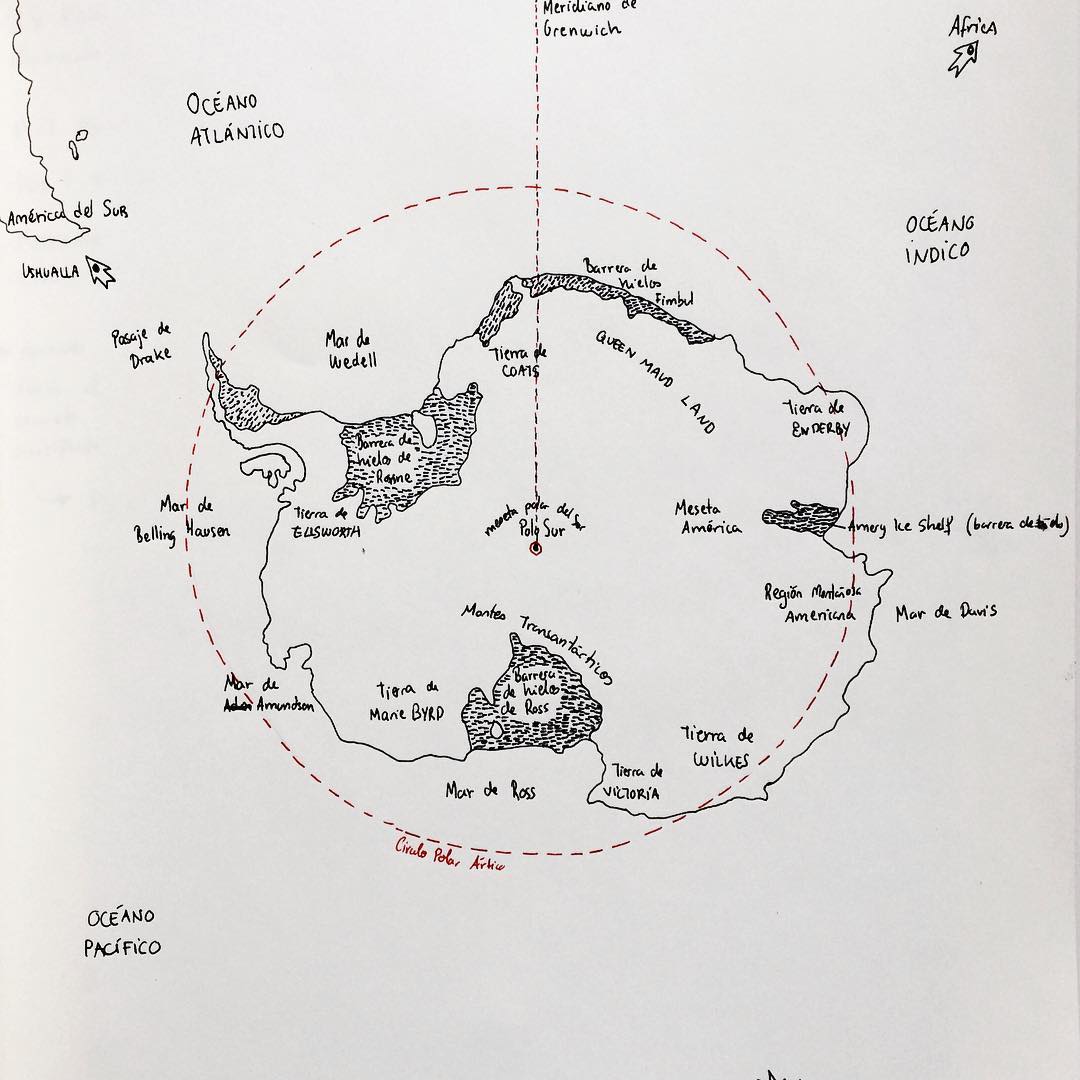 Meridiano de
Grenwich
Africa
OCÉANO
ATLÁNTICO
América del SUR
USHUALLA
OCÉANO
INDICO
Barrera de
hielos
Fimbul
Pasaje de
Drake
Mar de
Wedell
Tierra de
COATS
QUEEN MAUD LAND
Tierra de
ENDERBY
Barrera de
hielos de
Ronne
Mar de
Belling Hausen
Tierra de
ELLSWORTH
meseta polar del Sur
Polo Sur
Meseta
América
Amery Ice Shelf (barrera de
Región Montañosa
Americana
Mar de Davis
Montes Transantárticos
Barrera
de hielos
de Ross
Mar de
Amundson
Tierra de
Marie BYRD
Tierra de
WILKES
Tierra de
VICTORIA
Mar de Ross
Circulo Polar Ártico
OCÉANO
PACÍFICO